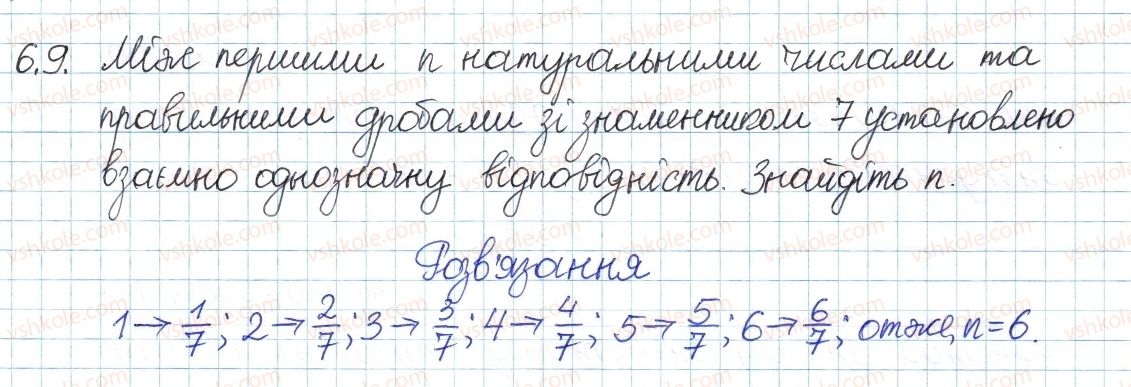 6.9. Між першими n натуральними числами та
правильними дробами зі знаменником 7 установлено
взаємно однозначну відповідність. Знайдіть n.
Розв'язання
1 → 1/7; 2 → 2/7; 3 → 3/7; 4 → 4/7; 5 → 5/7; 6 → 6/7; отже, n = 6.